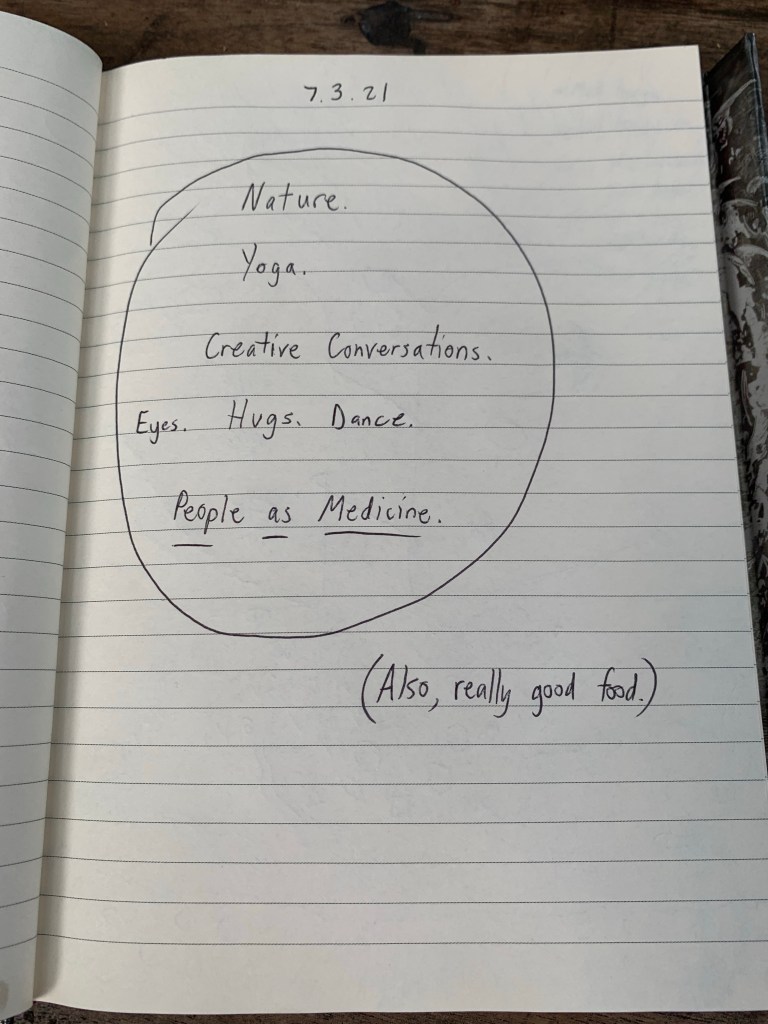 7.3.21
Nature.
Yoga.
Creative Conversations.
Eyes. Hugs. Dance.
People as Medicine.
(Also, really good food.)